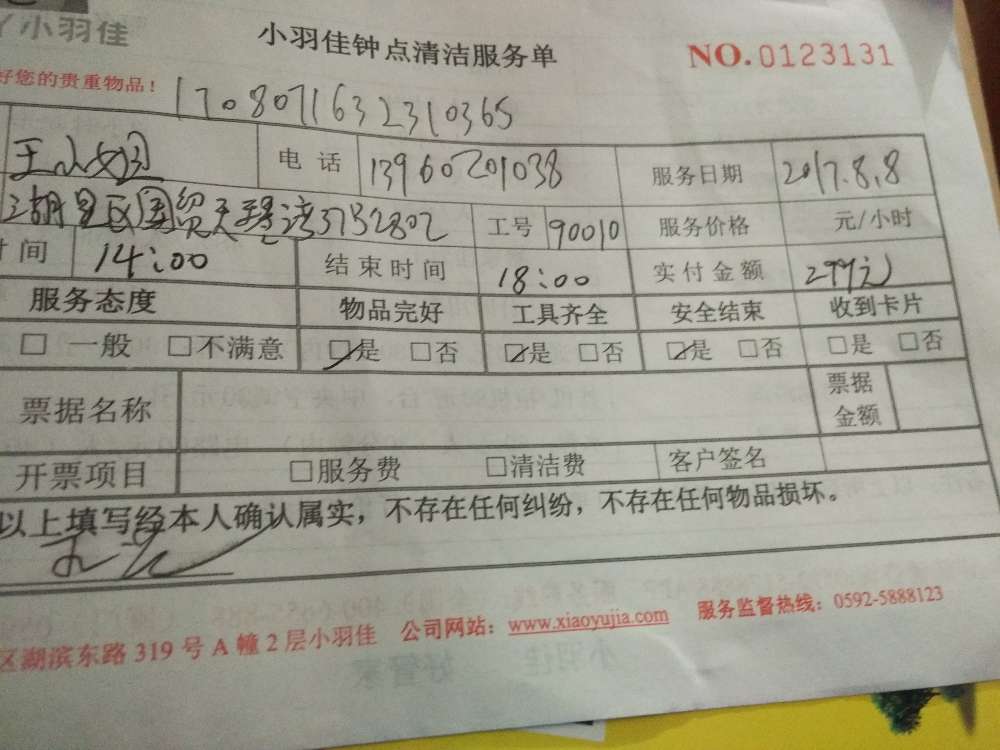 小羽佳
小羽佳钟点清洁服务单
NO.0123131
好您的贵重物品！
1708071632310365
王小姐 电话 13960201038 服务日期 2017.8.8
湖里区国贸天琴湾 工号 90010 服务价格 元/小时
时间 14:00 结束时间 18:00 实付金额
服务态度 物品完好 工具齐全 安全结束 收到卡片
□ 一般 □不满意 ☑是 □否 ☑是 □否 ☑是 □否 □是 □否
票据名称 票据金额
开票项目 □服务费 □清洁费 客户签名
以上填写经本人确认属实，不存在任何纠纷，不存在任何物品损坏。
区湖滨东路 319 号 A 幢 2 层小羽佳 公司网站：www.xiaoyujia.com 服务监督热线：0592-5888123